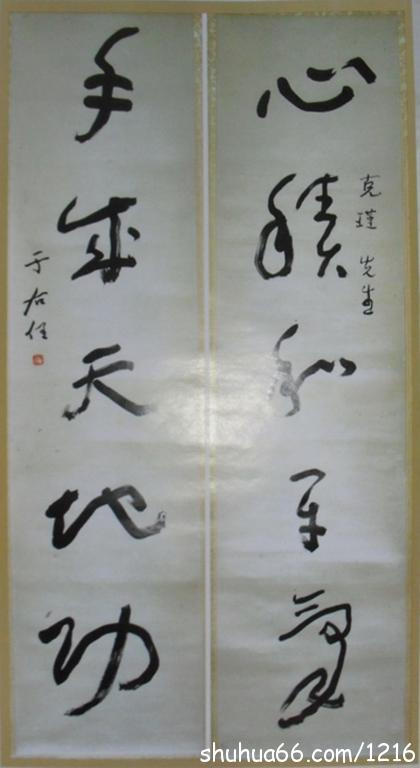 心積和平氣
克瑾先生
手成天地功
于右任
shuhua66.com/1216